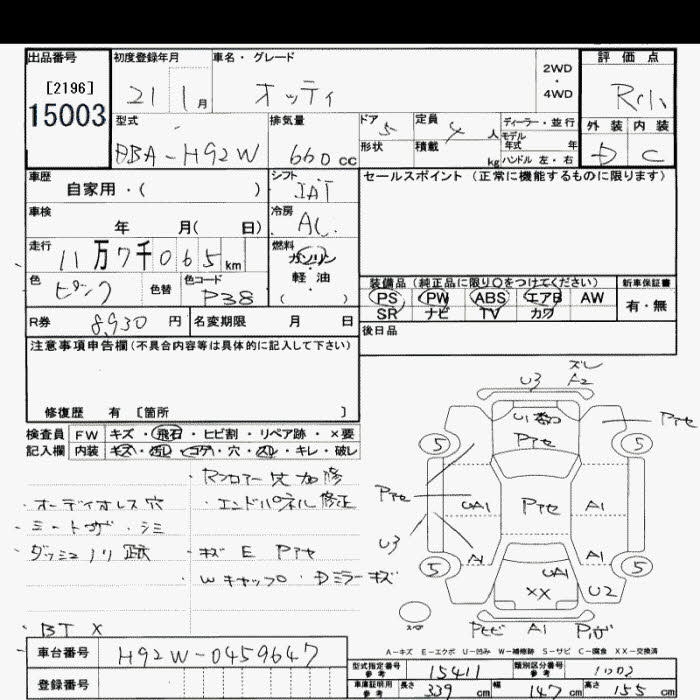 出品番号 初度登録年月 車名・グレード 2WD ・ 4WD 評価点
[2196] 21 1月 オッティ
15003
型式 排気量 ドア 5 定員 4人 ディーラー・並行 外装 内装
DBA-H92W 660cc 形状 積載 kg モデル年式 年 ハンドル 左・右 D C
車歴 シフト セールスポイント (正常に機能するものに限ります)
自家用・( ) IAT
車検 冷房
年 月( 日) AC
走行 燃料
11万7千065km ガソリン・軽油
色 色替 色コード ( ) 装備品 (純正品に限り○をつけてください) 新車保証書
ピンク P38 PS PW ABS エアB AW 有・無
R券 8,930円 名変期限 月 日 SR ナビ TV カワ
注意事項申告欄(不具合内容等は具体的に記入して下さい) 後日品
修復歴 有 [箇所 ]
検査員 FW キズ・飛石・ヒビ割・リペア跡・×要
記入欄 内装 キズ・汚レ・コゲ・穴・スレ・キレ・破レ
・Rフロアー 穴 加修
・オーディオレス穴 ・エンドパネル修正
・シミ
・ダッシュノリ跡 ・キズ E Pアセ
・Wキャップ・Dミラーキズ
・BT X
ズレ
U3 A2
U1
Pアセ Pアセ
5 5
Pアセ UA1 Pアセ A1
U3
A1 A1
5 UA1 5
XX U2
A1
A-キズ E-エクボ U-凹み W-補修跡 S-サビ C-腐食 XX-交換済
車台番号 H92W-0459647 型式指定番号 参考 15411 類別区分番号 参考
登録番号 車庫証明用 参考 長さ 339cm 幅 147cm 高さ 155cm